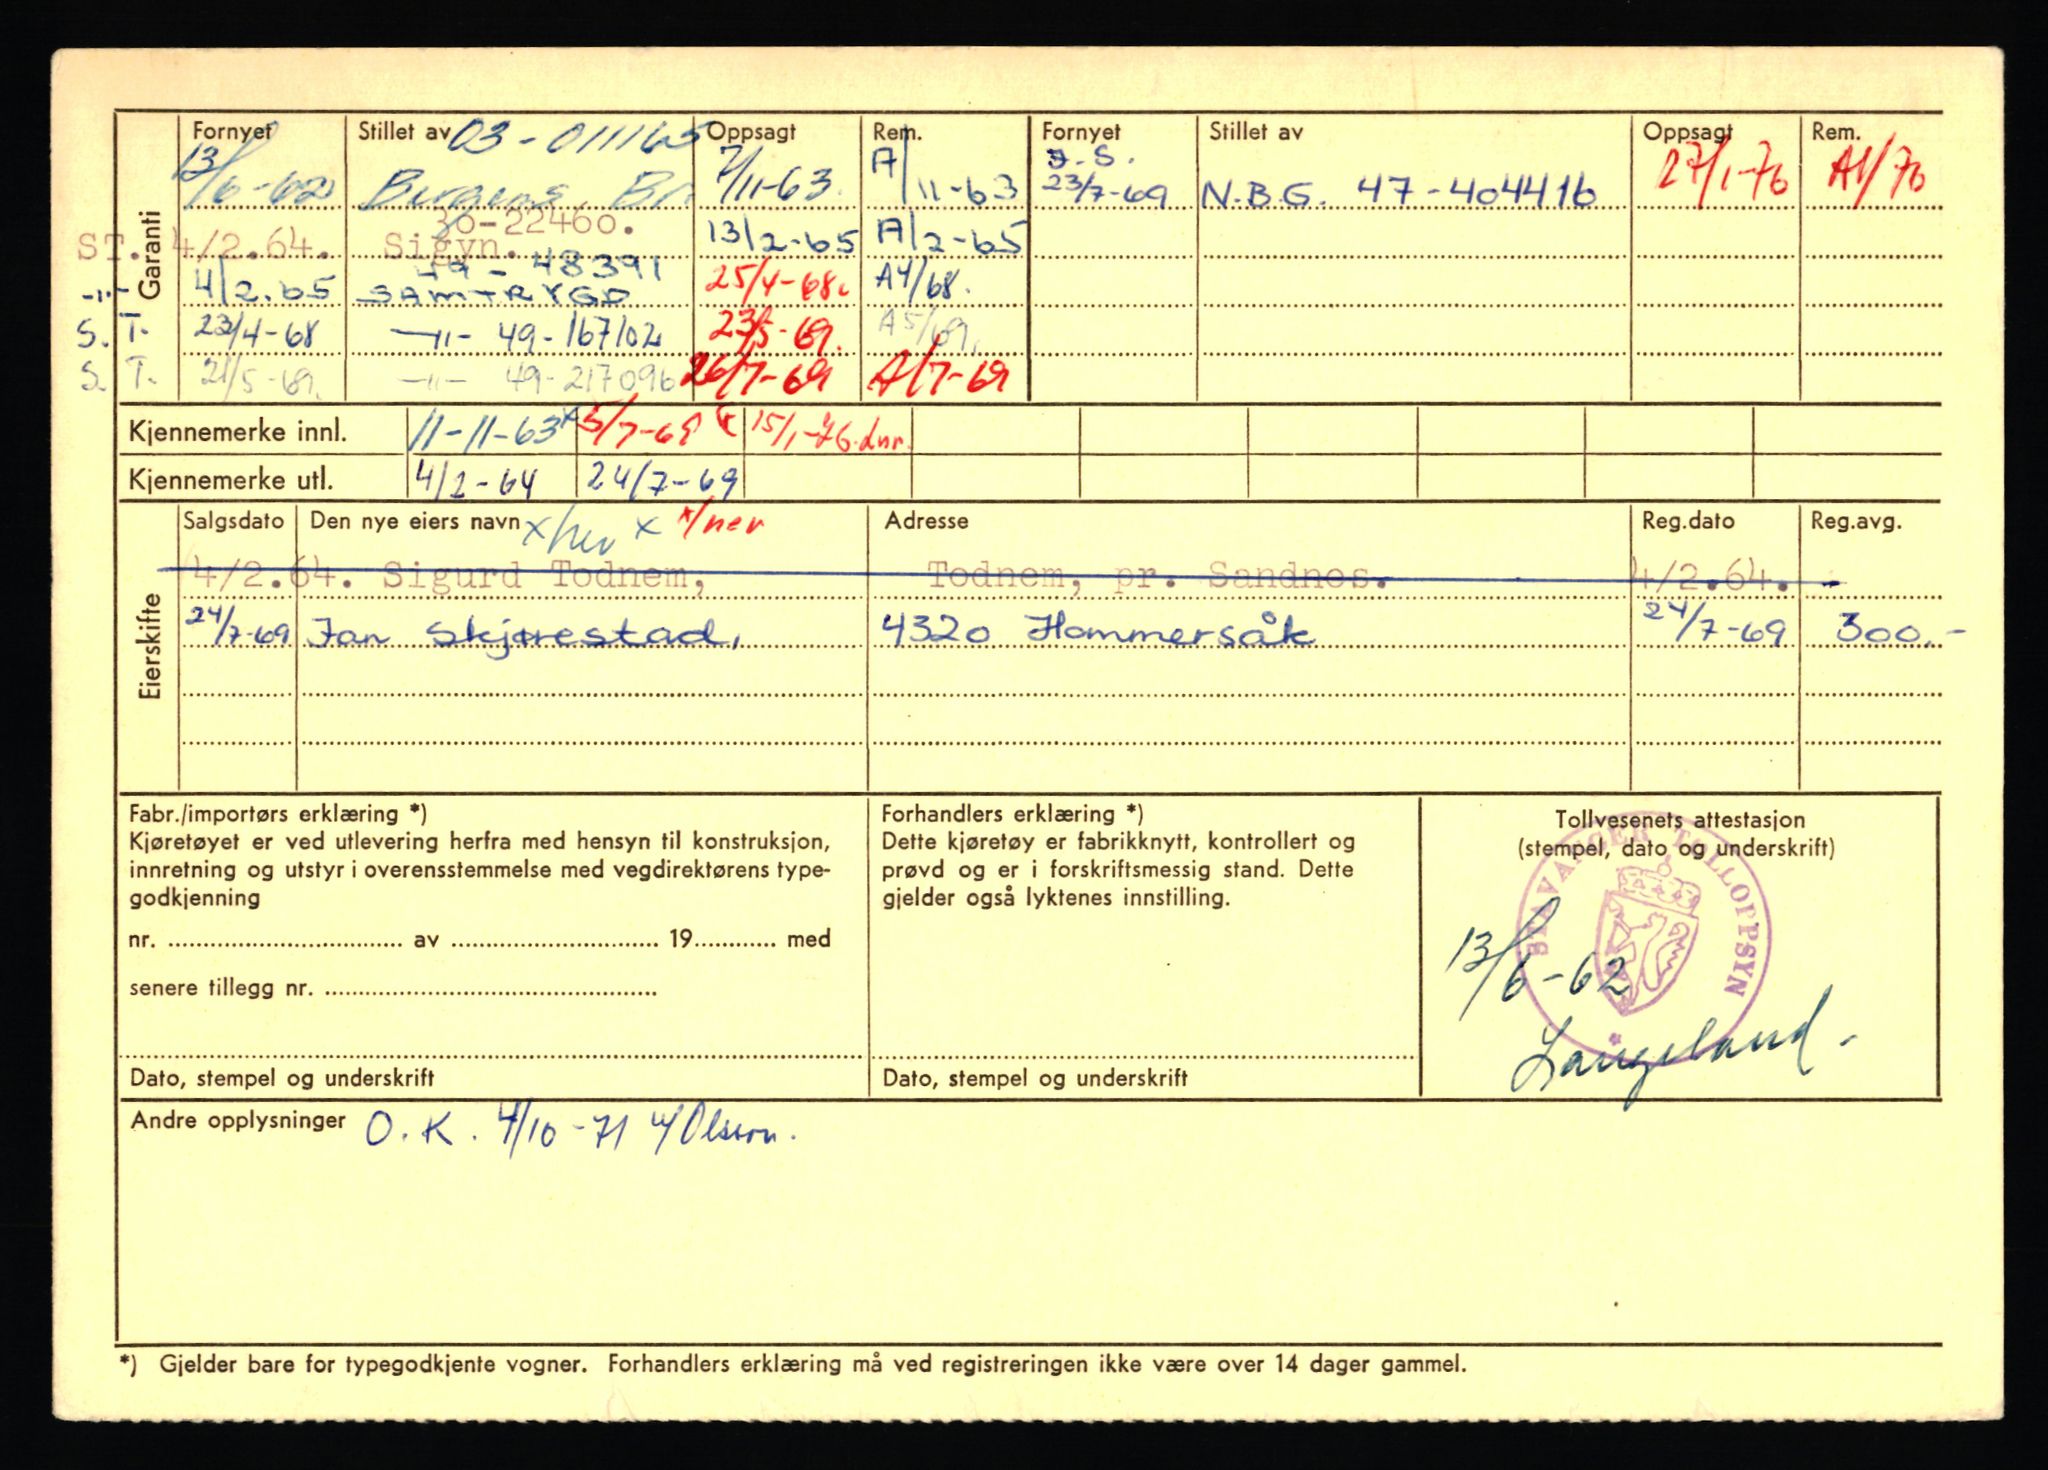 Garanti
Fornyet Stillet av 03-011165 Oppsagt Rem. Fornyet Stillet av Oppsagt Rem.
13/6-62 Bergens Br. 7/11-63. A/11-63 J.S. 23/7-69 N.B.G. 47-404416 27/1-76 A1/76
30-22460.
ST. 4/2.64. Sigyn. 13/2-65 A/2-65
49-48391
-"- 4/2.65 SAMTRYGD 25/4-68. A4/68.
S.T. 23/4-68 -"- 49-167102 23/5-69. A5/69.
S.T. 21/5-69. -"- 49-217096 26/7-69 A/7-69
Kjennemerke innl. 11-11-63 x 5/7-69 15/1-76.dnr.
Kjennemerke utl. 4/2-64 24/7-69
Eierskifte
Salgsdato Den nye eiers navn x/ner x x/ner Adresse Reg.dato Reg.avg.
4/2.64. Sigurd Todnem, Todnem, pr. Sandnes. 4/2.64. -
24/7-69 Jan Skjørestad, 4320 Hommersåk 24/7-69 300.-
Fabr./importørs erklæring *)
Kjøretøyet er ved utlevering herfra med hensyn til konstruksjon,
innretning og utstyr i overensstemmelse med vegdirektørens type-
godkjenning
nr. ........ av ........ 19........ med
senere tillegg nr. ........
Dato, stempel og underskrift
Forhandlers erklæring *)
Dette kjøretøy er fabrikknytt, kontrollert og
prøvd og er i forskriftsmessig stand. Dette
gjelder også lyktenes innstilling.
Dato, stempel og underskrift
Tollvesenets attestasjon
(stempel, dato og underskrift)
STAVANGER TOLLOPPSYN
13/6-62
Langeland.
Andre opplysninger O.K. 4/10-71 Olsen.
*) Gjelder bare for typegodkjente vogner. Forhandlers erklæring må ved registreringen ikke være over 14 dager gammel.